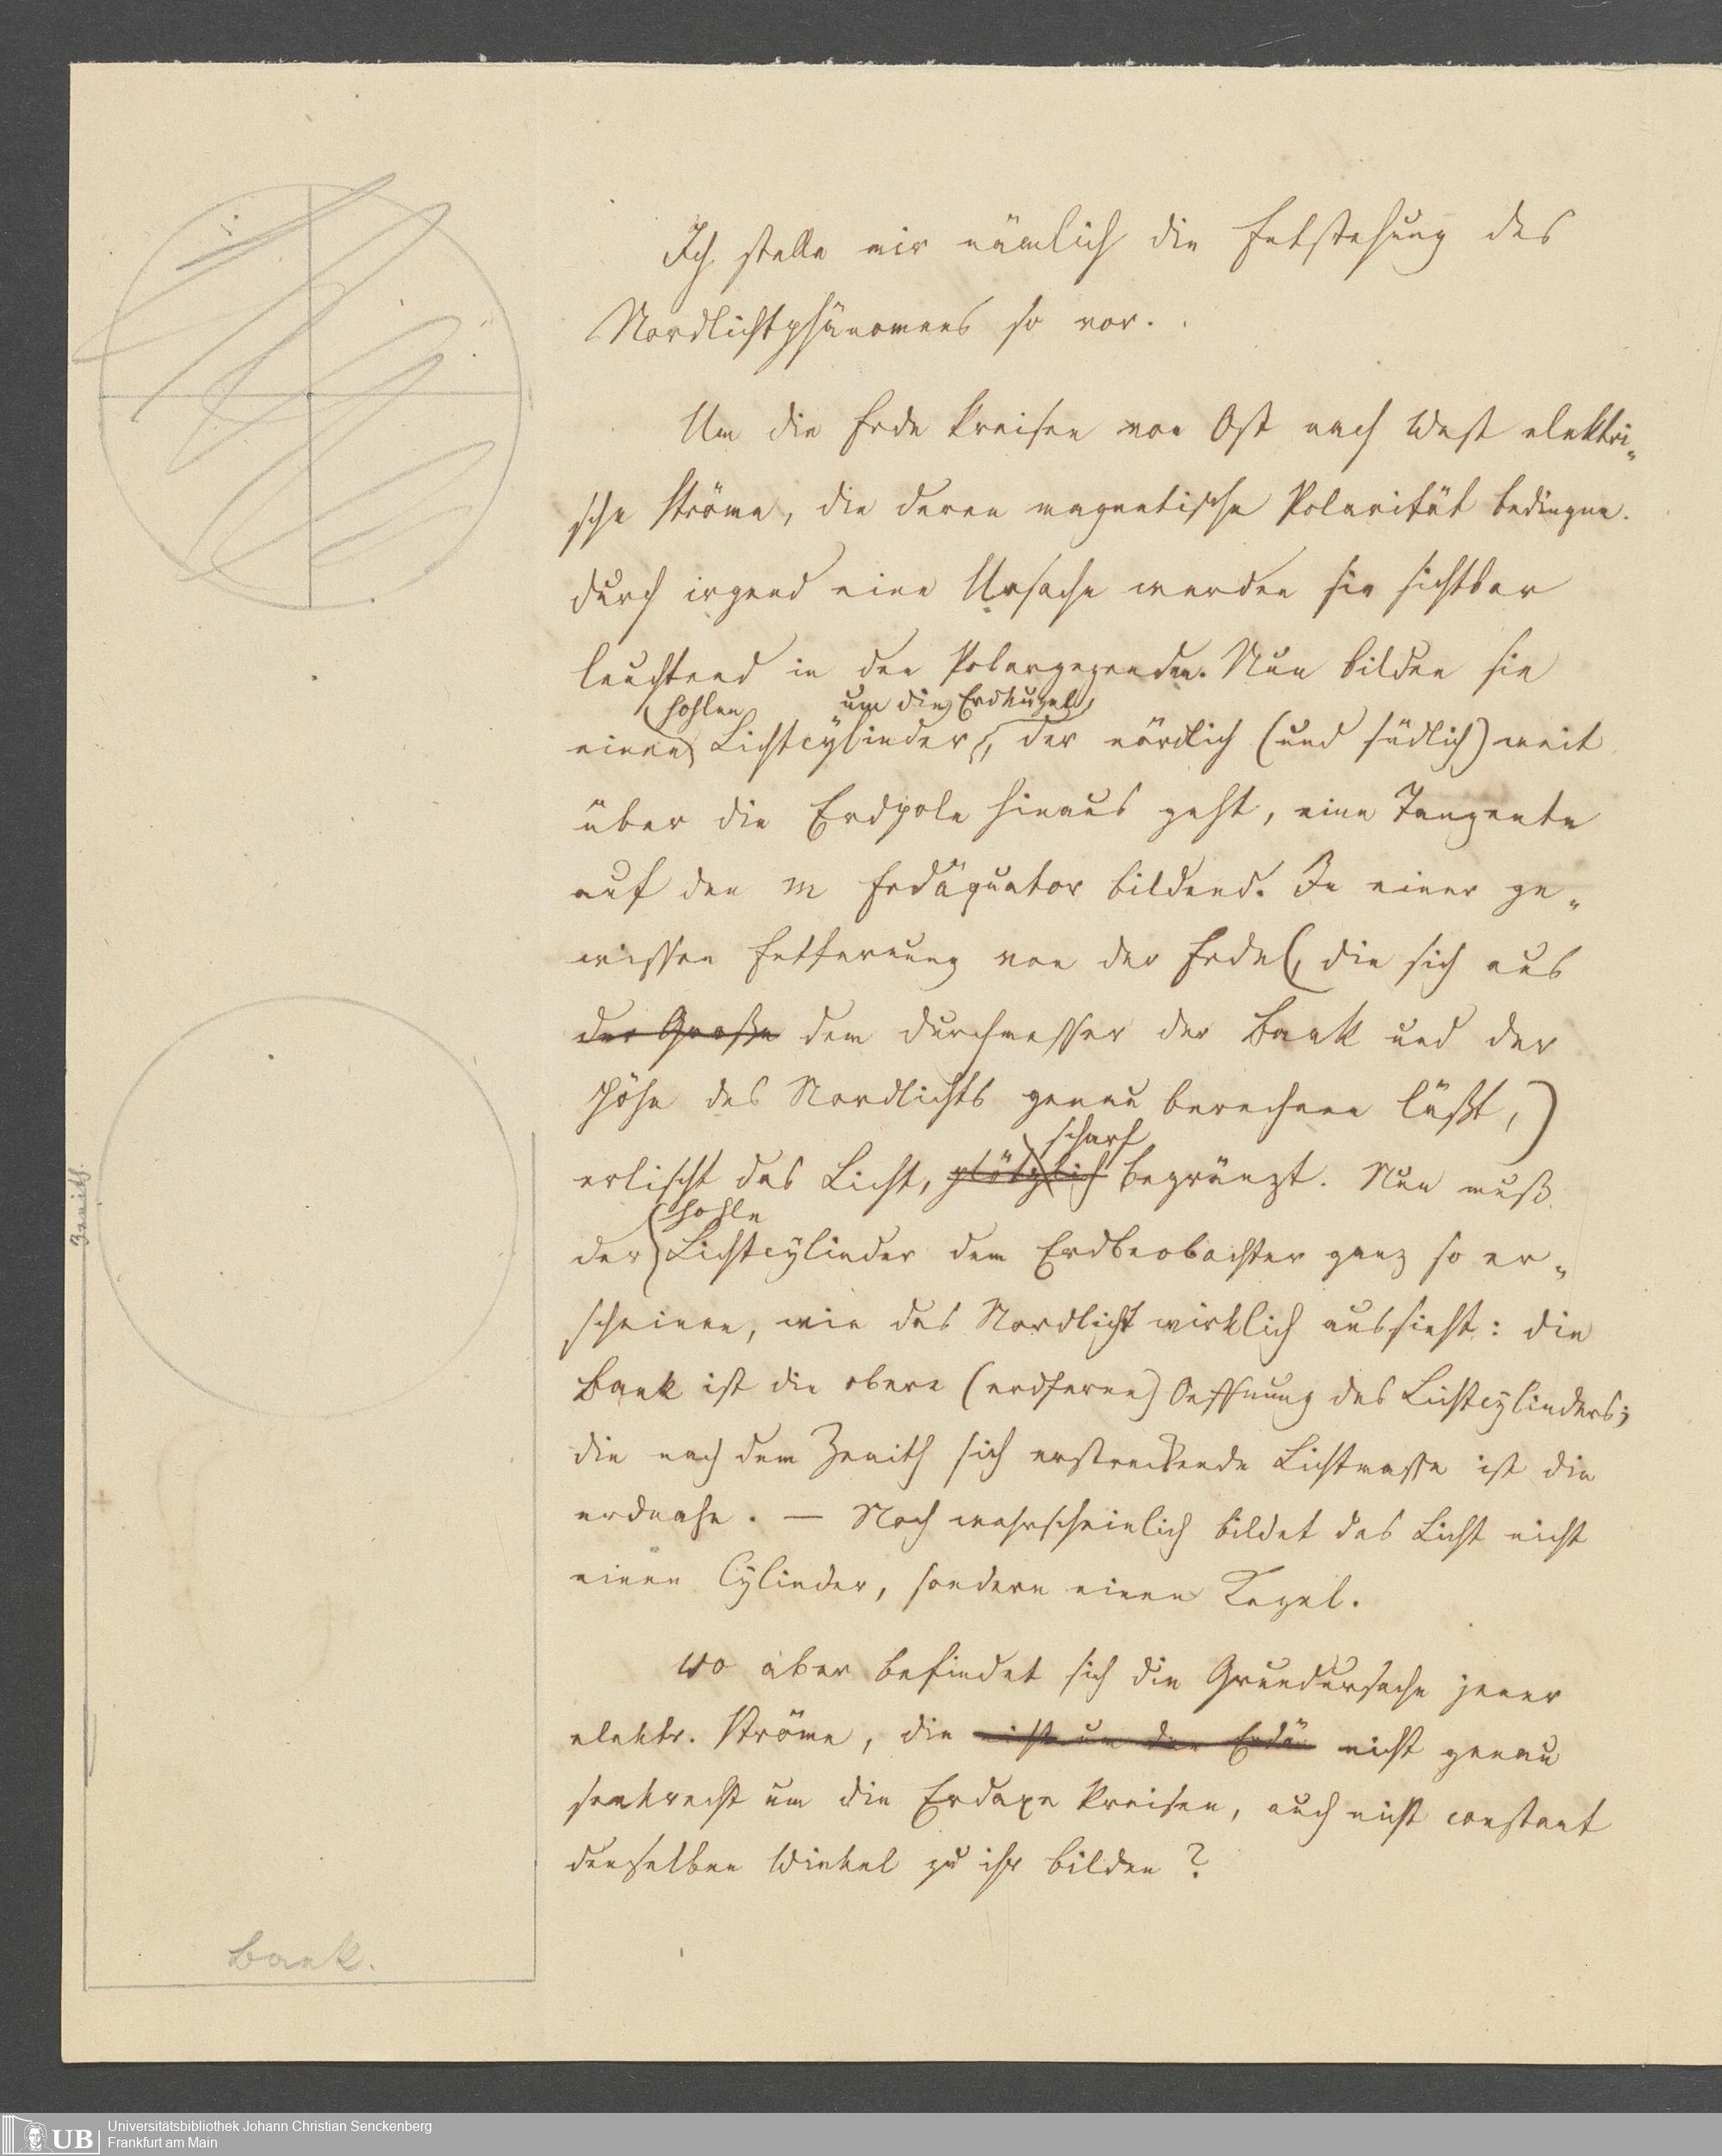 Ich stelle mir nämlich die Entstehung des
Nordlichtphänomens so vor.
Um die Erde kreisen von Ost nach West elektri-
sche Ströme, die deren magnetische Polarität bedingen.
Durch irgend eine Ursache werden sie sichtbar
leuchtend in den Polargegenden. Nun bilden sie
einen hohlen Lichtcylinder um die Erdkugel, der nördlich (und südlich) weit
über die Erdpole hinaus geht, eine Tangente
auf den m Erdäquator bildend. In einer ge-
wissen Entfernung von der Erde (, die sich aus
der Große dem Durchmesser der Bank und der
Höhe des Nordlichts genau berechnen läßt,)
erlischt das Licht, plötzlich scharf begränzt. Nun muß
der hohle Lichtcylinder dem Erdbeobachter ganz so er-
scheinen, wie das Nordlicht wirklich aussieht: die
Bank ist die obere (erdferne) Oeffnung des Lichtcylinders;
die nach dem Zenith sich erstreckende Lichtmasse ist die
erdnahe. — Noch wahrscheinlich bildet das Licht nicht
einen Cylinder, sondern einen Kegel.
Wo aber befindet sich die Grundursache jener
elektr. Ströme, die nicht um den Erdä nicht genau
senkrecht um die Erdaxe kreisen, auch nicht constant
denselben Winkel zu ihr bilden?
Zenith.
Bank.
UB
Universitätsbibliothek Johann Christian Senckenberg
Frankfurt am Main